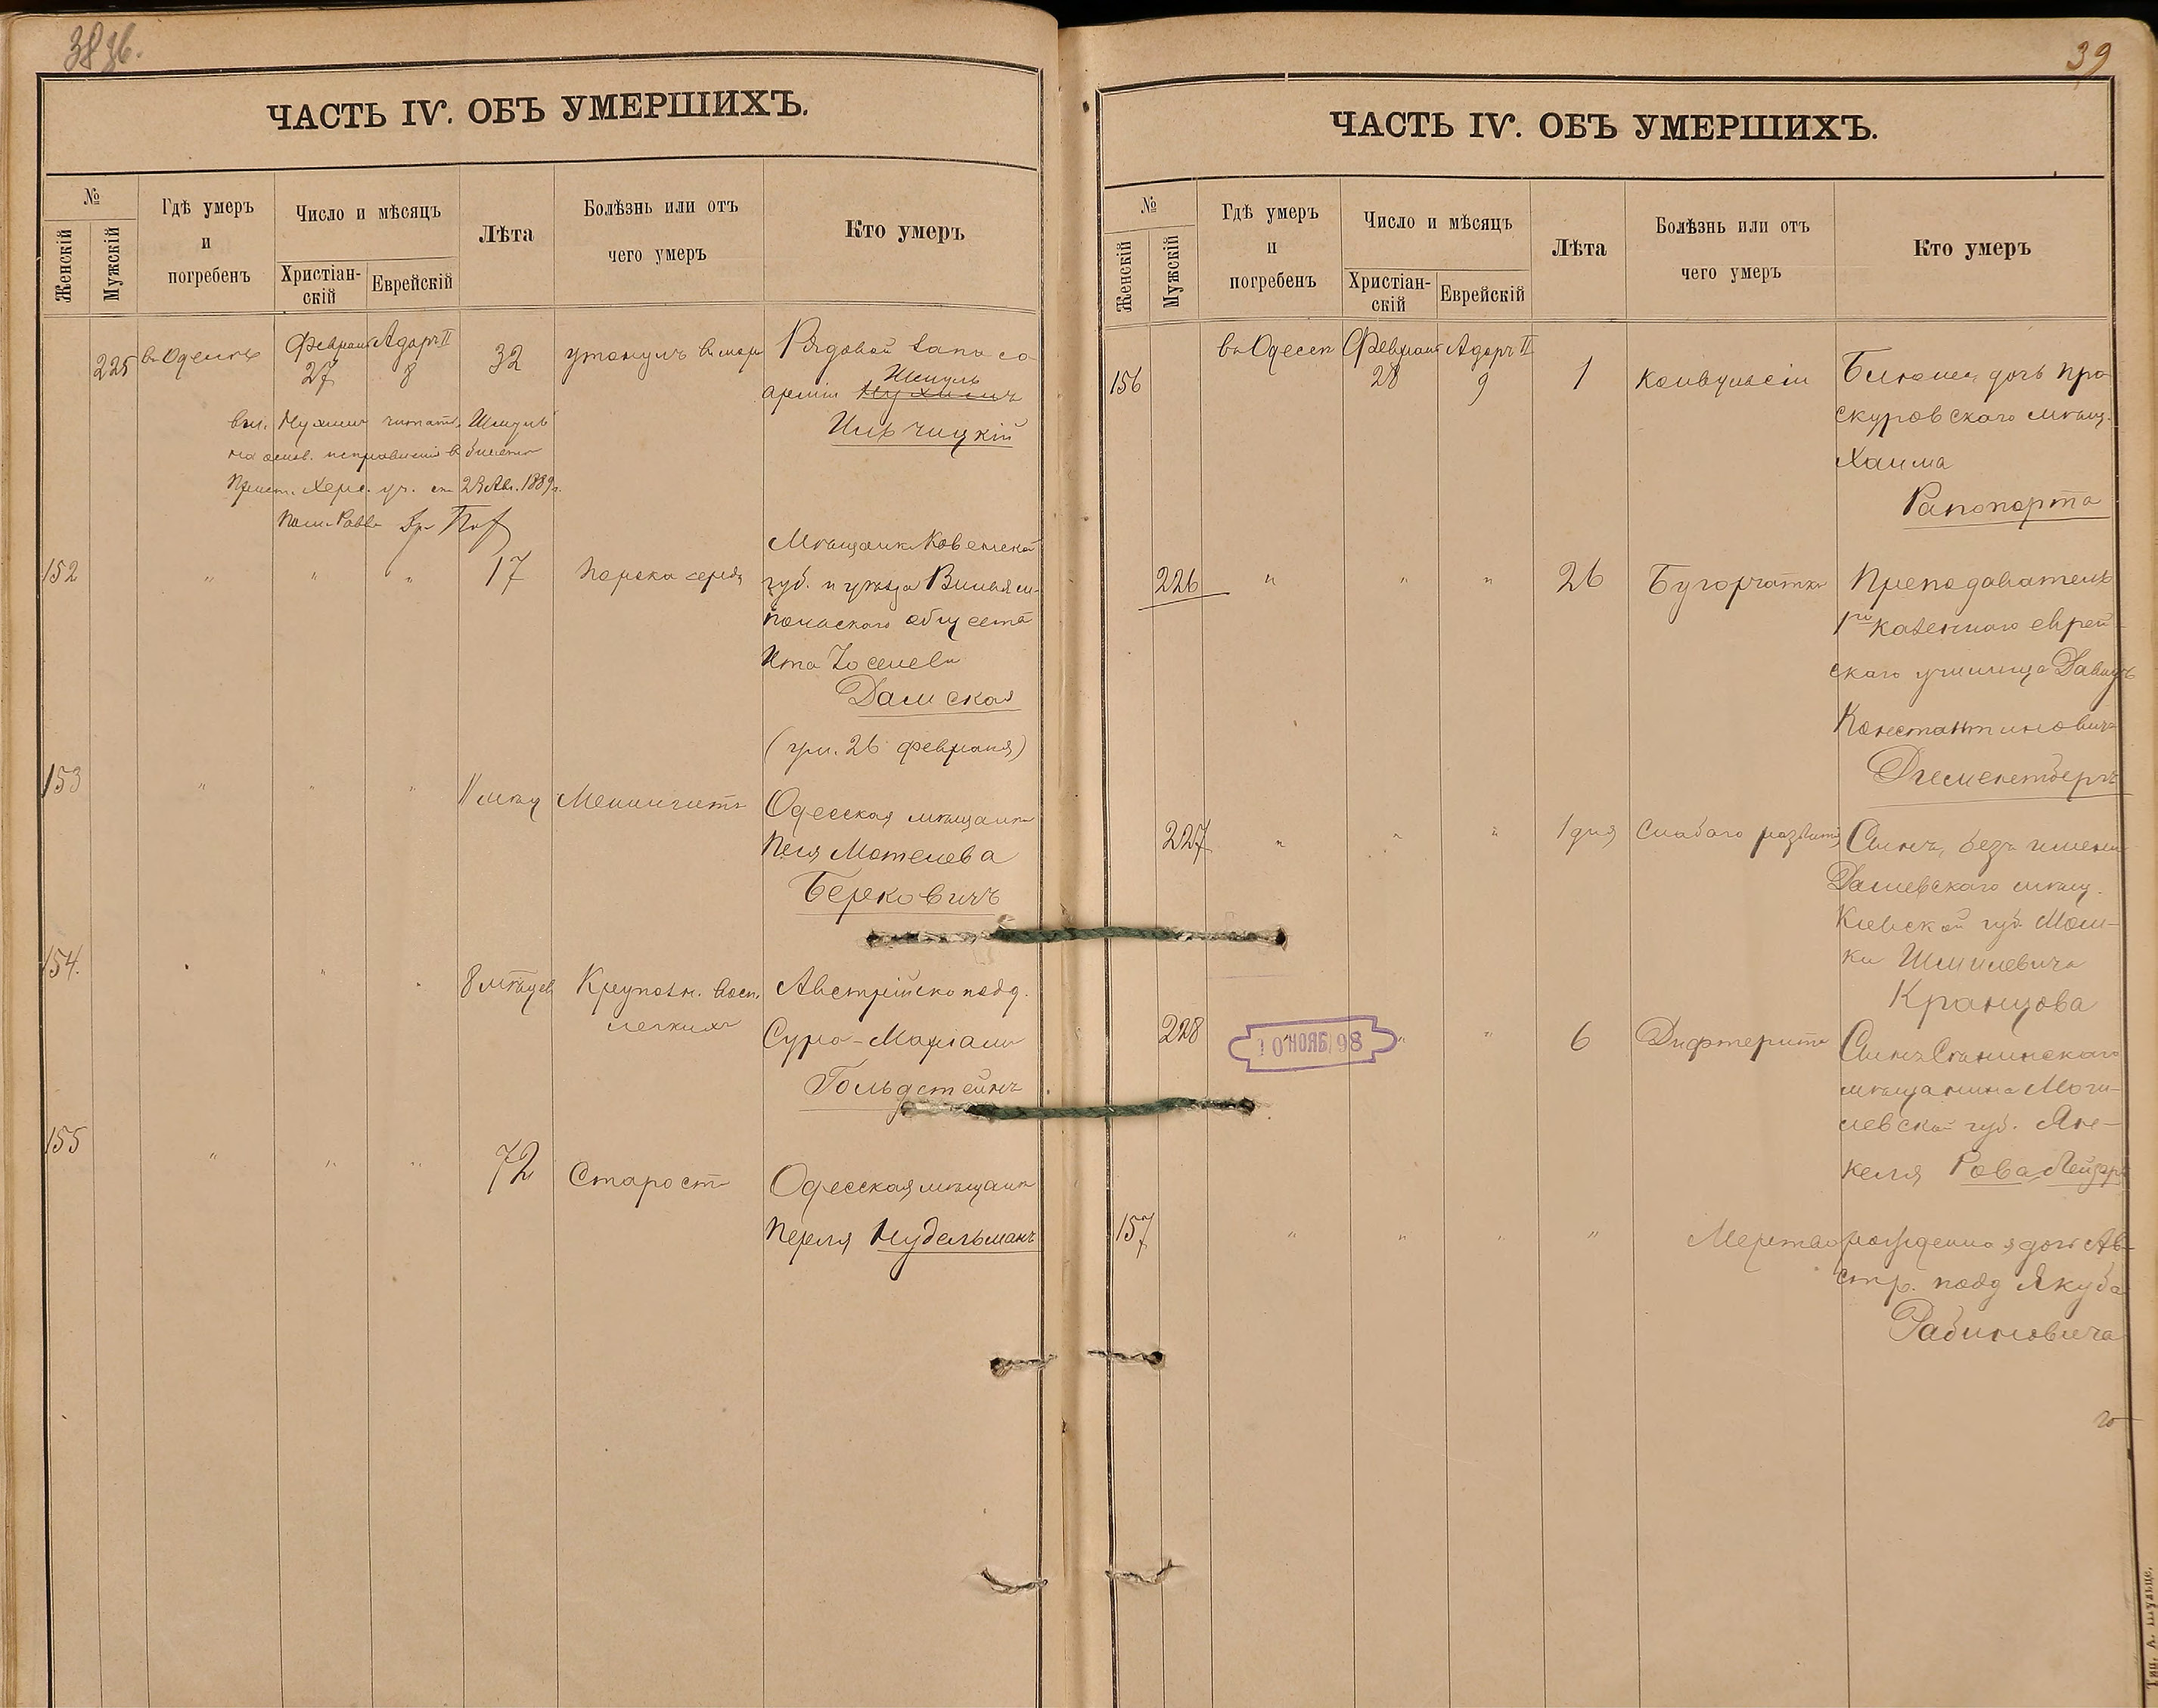 38 об.
ЧАСТЬ IV. ОБЪ УМЕРШИХЪ.
№
Женскій
Мужскій
Гдѣ умеръ
и
погребенъ
Число и мѣсяцъ
Христіан-
скій
Еврейскій
Лѣта
Болѣзнь или отъ
чего умеръ
Кто умеръ
225 въ Одессѣ Февраля 27 Адаръ II 8 32 утонулъ въ морѣ Рядовой запаса
арміи Шмуль
Ильчицкій
читать Шмуль
на основ. исправленія въ билетѣ
28 Авг. 1889 г.
152 " " " 17 порокъ сердца Мѣщанка Ковенской
губ. и уѣзда
общества
Ита Іоселева
Дамская
(ум. 26 февраля)
153 " " " 11 мѣсяц Менингитъ Одесская мѣщанка
Песя Мотелева
Берковичъ
154. 8 мѣсяцев Крупозн. восп.
легкихъ
Австрійско подд.
Сура-Маріам
Гольдстейнъ
155 " " " 72 Старость Одесская мѣщанка
Перля Нудельманъ
39
ЧАСТЬ IV. ОБЪ УМЕРШИХЪ.
№
Женскій
Мужскій
Гдѣ умеръ
и
погребенъ
Число и мѣсяцъ
Христіан-
скій
Еврейскій
Лѣта
Болѣзнь или отъ
чего умеръ
Кто умеръ
156 въ Одессѣ Февраля 28 Адаръ II 9 1 Конвульсіи Блюма дочь Про-
скуровскаго мѣщ.
Хаима
Рапопорта
226 " " " 26 Бугорчатка Преподаватель
1го казеннаго еврей-
скаго училища Давидъ
Константиновичъ
227 " " " 1 дня Слабаго развитія Сынъ, безъ имени
Дашевскаго мѣщ.
Кіевской губ. Мош-
ки Шмилевича
Кранцова
228 10 НОЯБ 98 " " 6 Дифтеритъ Сынъ
мѣщанина Моги-
левской губ. Ян-
келя Рова Лейзеръ
157 " " " " Мертворожденная дочь Ав-
стр. подд Якуба
Рабиновича
Тип. А. Шульце.